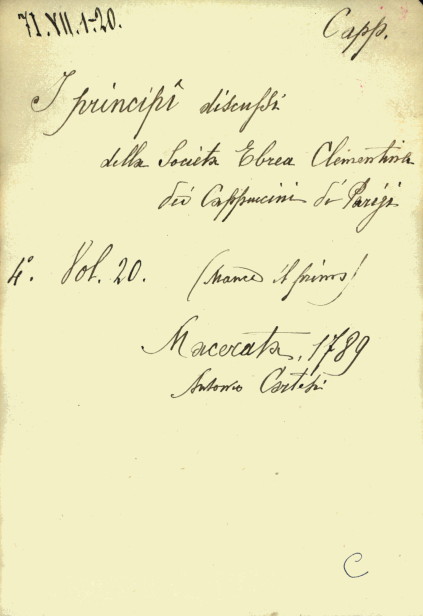 71.VII.1-20.
Capp.
I principî discussi
della Società Ebrea Clementina
dei Cappuccini di Parigi
4°. Vol. 20. (Manca il primo)
Macerata, 1789
Antonio Cortesi
C